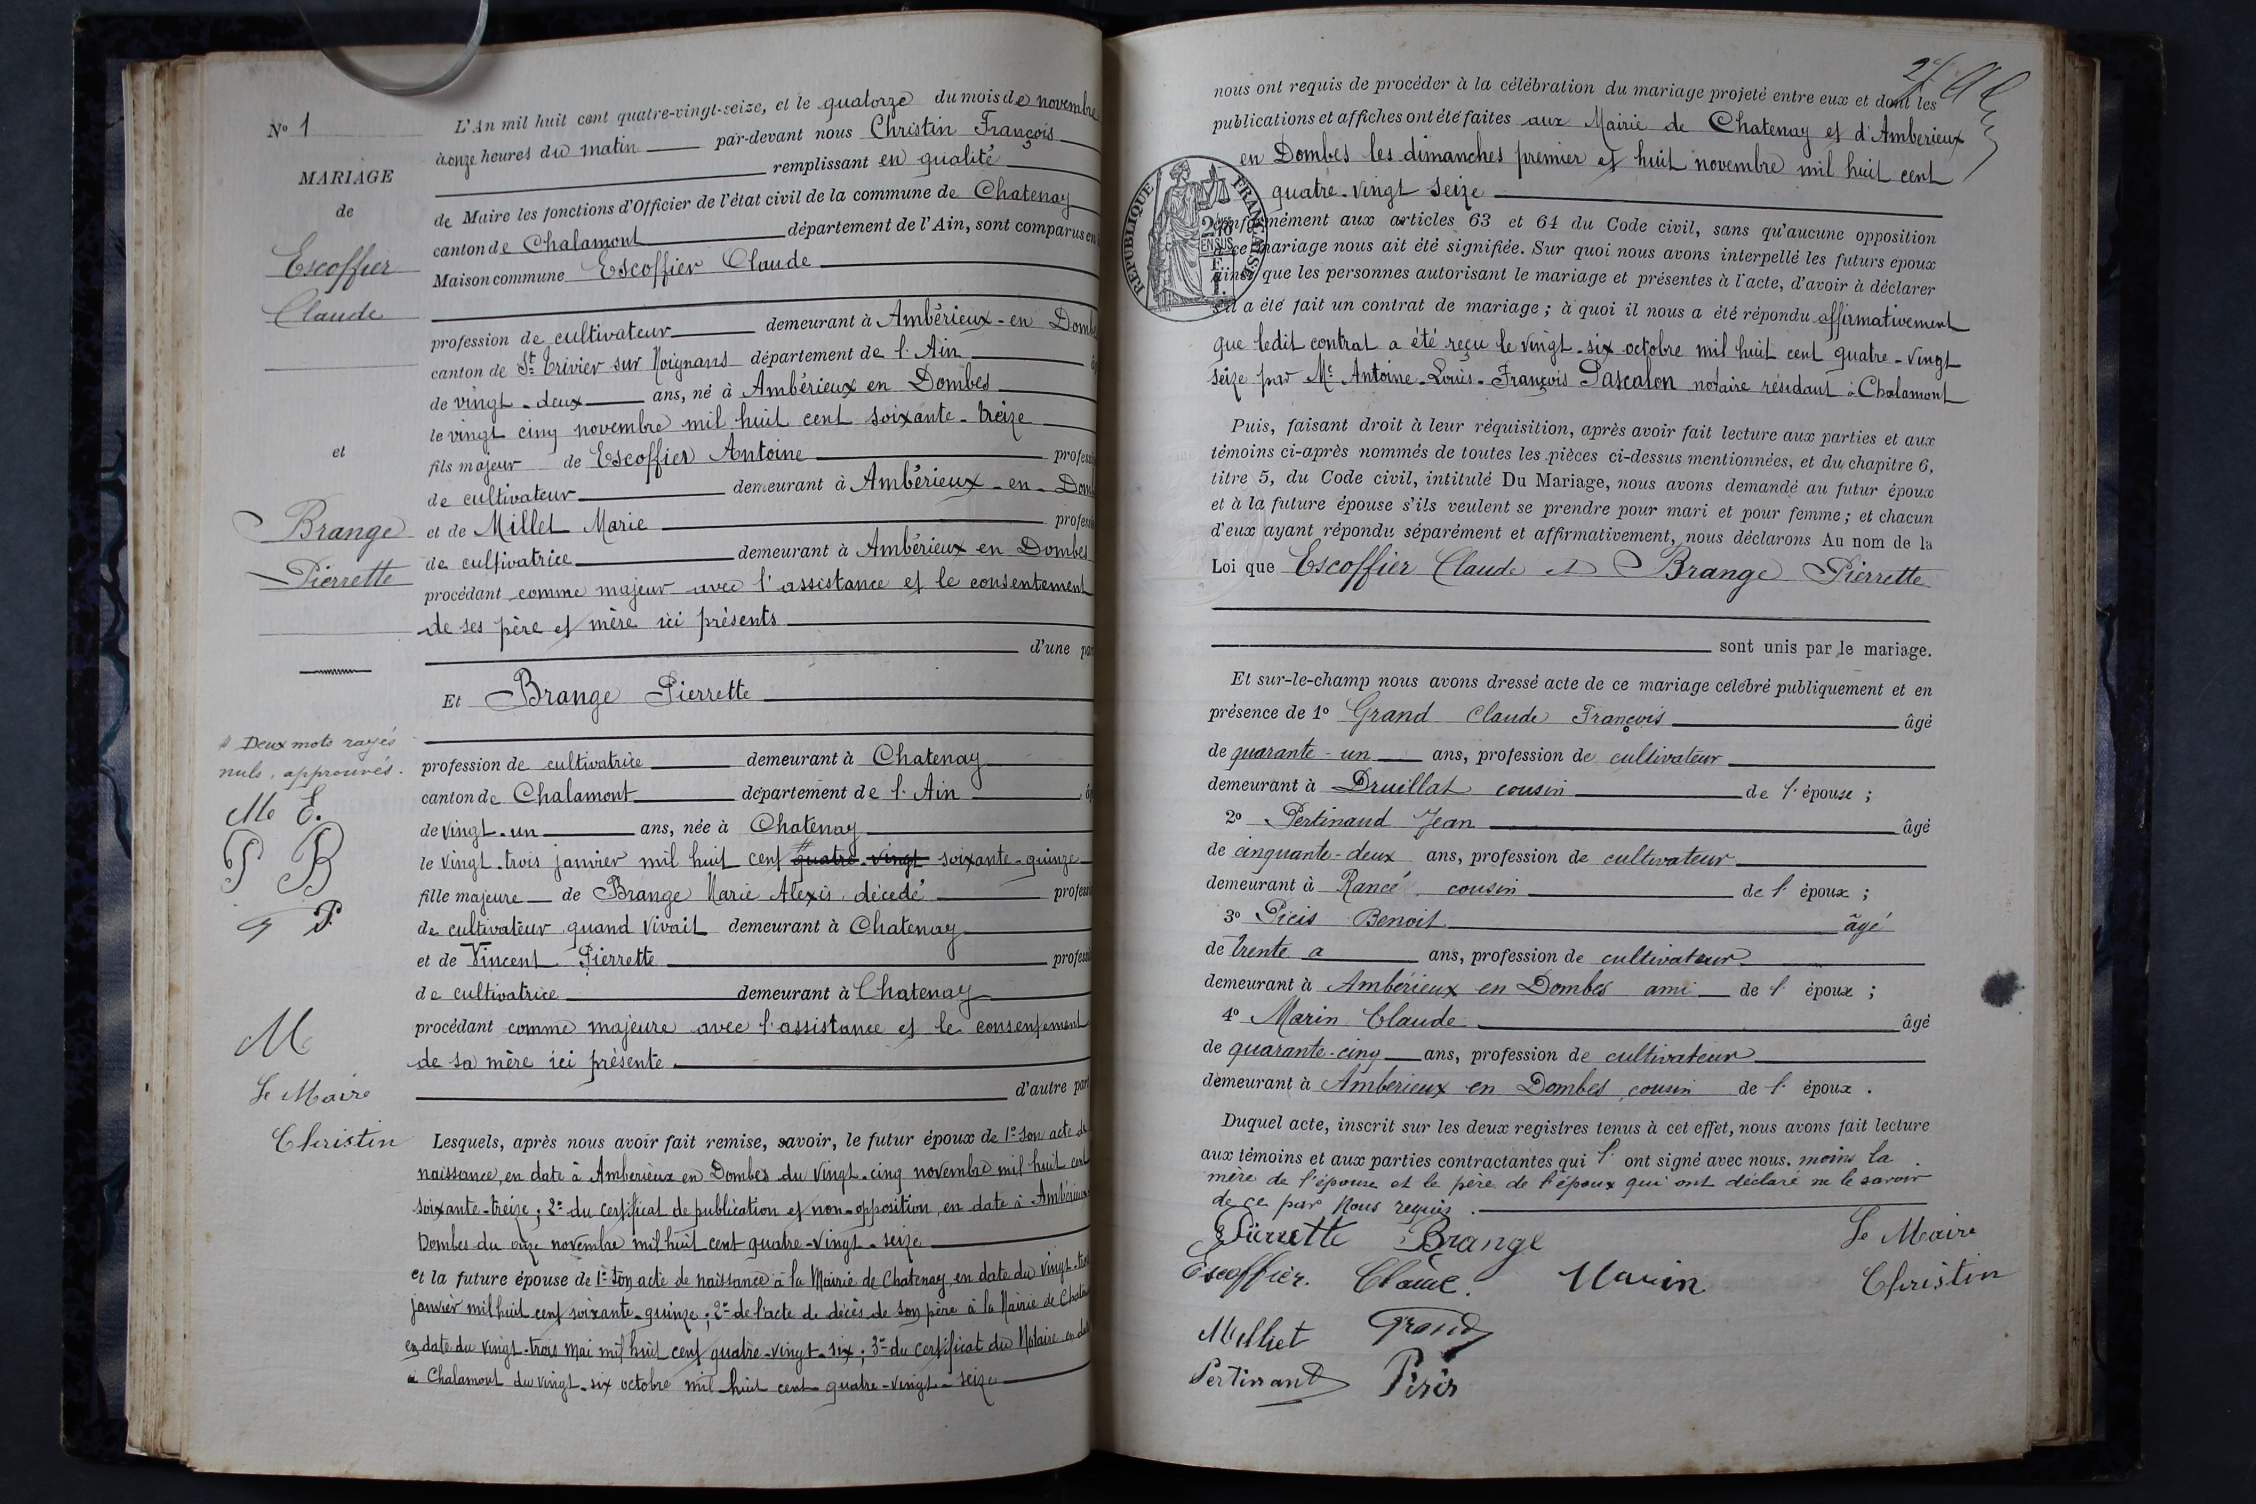 N° 1
MARIAGE
de
Escoffier
Claude
et
Brange
Pierrette
Deux mots rayés
nuls, approuvés.
M E.
P B
P.
M
Le Maire
Christin
L'An mil huit cent quatre-vingt-seize, et le quatorze du mois de novembre
à onze heures du matin par-devant nous Christin François
remplissant en qualité
de Maire les fonctions d'Officier de l'état civil de la commune de Chatenay
canton de Chalamont département de l'Ain, sont comparus en
Maison commune Escoffier Claude
profession de cultivateur demeurant à Ambérieux-en Domb
canton de St Trivier sur Moignans département de l'Ain
de vingt-deux ans, né à Ambérieux en Dombes
le vingt cinq novembre mil huit cent soixante-treize
fils majeur de Escoffier Antoine profess
de cultivateur demeurant à Ambérieux-en-Dom
et de Millet Marie profess
de cultivatrice demeurant à Ambérieux en Dombes
procédant comme majeur avec l'assistance et le consentement
de ses père et mère ici présents
d'une par
Et Brange Pierrette
profession de cultivatrice demeurant à Chatenay
canton de Chalamont département de l'Ain
de vingt-un ans, née à Chatenay
le vingt-trois janvier mil huit cent quatre-vingt soixante-quinze
fille majeure de Brange Marie Alexis, décédé profess
de cultivateur quand vivait demeurant à Chatenay
et de Vincent Pierrette profess
de cultivatrice demeurant à Chatenay
procédant comme majeure avec l'assistance et le consentement
de sa mère ici présente
d'autre part
Lesquels, après nous avoir fait remise, savoir, le futur époux de 1° son acte de
naissance, en date à Amberieux en Dombes du vingt-cinq novembre mil huit cent
soixante-treize; 2° du certificat de publication et non-opposition, en date à Ambérieux
Dombes du onze novembre mil huit cent quatre-vingt-seize
et la future épouse de 1° son acte de naissance à la Mairie de Chatenay, en date du vingt-trois
janvier mil huit cent soixante-quinze; 2° de l'acte de décès de son père à la Mairie de Chaten
en date du vingt-trois mai mil huit cent quatre-vingt-six; 3° du certificat du Notaire en date
à Chalamont du vingt-six octobre mil huit cent quatre-vingt-seize
2
nous ont requis de procéder à la célébration du mariage projeté entre eux et dont les
publications et affiches ont été faites aux Mairie de Chatenay et d'Amberieux
en Dombes les dimanches premier et huit novembre mil huit cent
quatre-vingt seize
RÉPUBLIQUE FRANÇAISE
conformément aux articles 63 et 64 du Code civil, sans qu'aucune opposition
à ce mariage nous ait été signifiée. Sur quoi nous avons interpellé les futurs époux
ainsi que les personnes autorisant le mariage et présentes à l'acte, d'avoir à déclarer
s'il a été fait un contrat de mariage; à quoi il nous a été répondu affirmativement
que ledit contrat a été reçu le vingt-six octobre mil huit cent quatre-vingt
seize par Me Antoine-Louis-François Pascalon notaire résidant à Chalamont
Puis, faisant droit à leur réquisition, après avoir fait lecture aux parties et aux
témoins ci-après nommés de toutes les pièces ci-dessus mentionnées, et du chapitre 6,
titre 5, du Code civil, intitulé Du Mariage, nous avons demandé au futur époux
et à la future épouse s'ils veulent se prendre pour mari et pour femme; et chacun
d'eux ayant répondu séparément et affirmativement, nous déclarons Au nom de la
Loi que Escoffier Claude et Brange Pierrette
sont unis par le mariage.
Et sur-le-champ nous avons dressé acte de ce mariage célébré publiquement et en
présence de 1° Grand Claude François âgé
de quarante-un ans, profession de cultivateur
demeurant à Druillat cousin de l'épouse;
2° Pertinand Jean âgé
de cinquante-deux ans, profession de cultivateur
demeurant à Rancé cousin de l'époux;
3° Picis Benoit âgé
de trente a ans, profession de cultivateur
demeurant à Ambérieux en Dombes ami de l'époux;
4° Marin Claude âgé
de quarante-cinq ans, profession de cultivateur
demeurant à Amberieux en Dombes, cousin de l'époux.
Duquel acte, inscrit sur les deux registres tenus à cet effet, nous avons fait lecture
aux témoins et aux parties contractantes qui l'ont signé avec nous. moins la
mère de l'épouse et le père de l'époux qui ont déclaré ne le savoir
de ce par Nous requis.
Pierrette Brange Le Maire
Escoffier. Claude. Marin Christin
Milliet Grand
Pertinant Picis